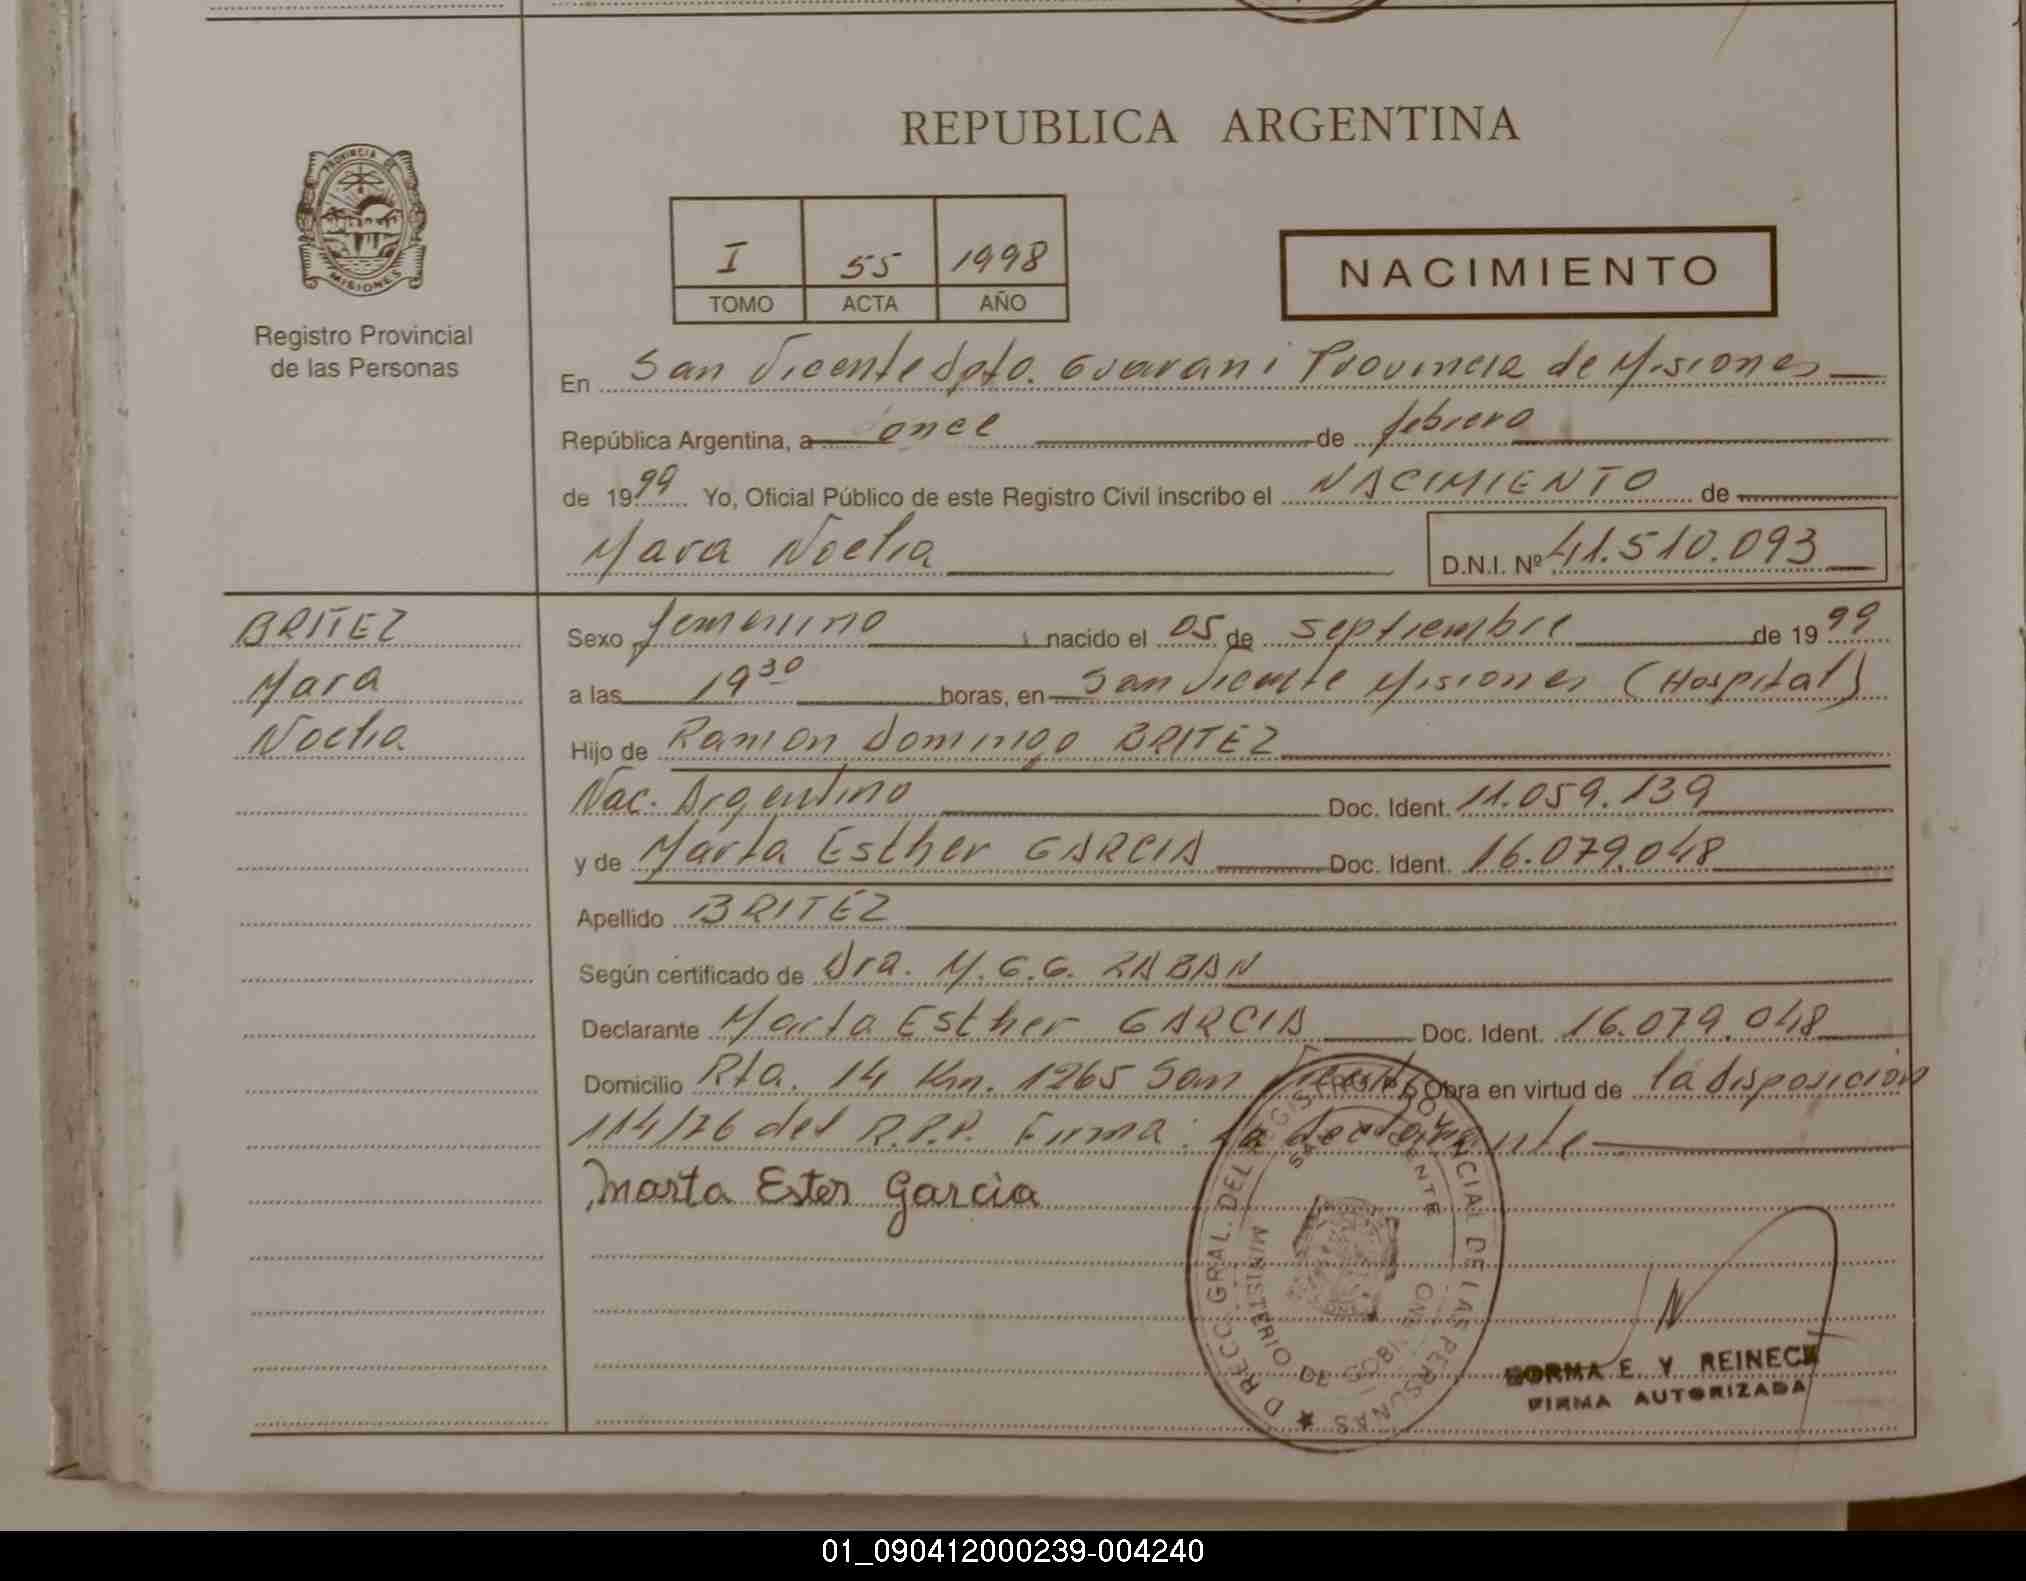 REPUBLICA ARGENTINA
PROVINCIA DE
MISIONES
Registro Provincial
de las Personas
I 55 1998
TOMO ACTA AÑO
NACIMIENTO
En San Vicente Dpto. Guarani Provincia de Misiones
República Argentina, a once de febrero
de 1999 Yo, Oficial Público de este Registro Civil inscribo el NACIMIENTO de
Mara Noelia D.N.I. Nº 41.510.093
BRITEZ
Mara
Noelia
Sexo femenino nacido el 05 de septiembre de 1999
a las 19 30 horas, en San Vicente Misiones (Hospital)
Hijo de Ramon Domingo BRITEZ
Nac. Argentino Doc. Ident. 11.059.139
y de Marta Esther GARCIA Doc. Ident. 16.079.048
Apellido BRITEZ
Según certificado de Dra. M.G.G. RABAN
Declarante Marta Esther GARCIA Doc. Ident. 16.079.048
Domicilio Rta. 14 Km. 1265 San Vicente Obra en virtud de la disposición
114/76 del R.P.P. Firma: La declarante
Marta Ester Garcia
DIRECC. GRAL. DEL REGISTRO PROVINCIAL DE LAS PERSONAS
SAN VICENTE
MINISTERIO DE GOBIERNO
NORMA E. V. REINECK
FIRMA AUTORIZADA
01_090412000239-004240